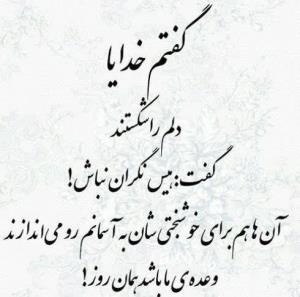 گفتم خدایا
دلم را شکستند
گفت: هیس نگران نباش!
آن ها هم برای خوشبختی شان به آسمانم رو می اندازند
وعده ی ما باشد همان روز!